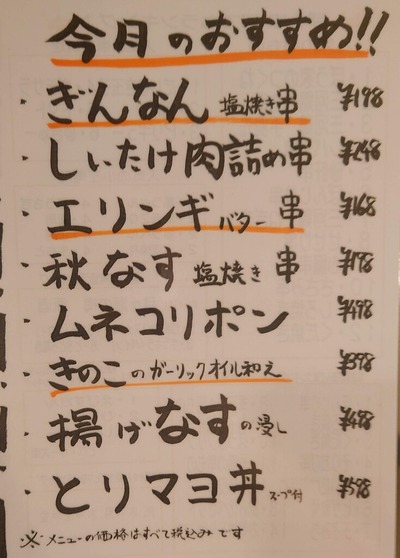 今月のおすすめ!!
・ぎんなん 塩焼き串 ¥198
・しいたけ肉詰め串 ¥248
・エリンギバター串 ¥168
・秋なす 塩焼き串 ¥198
・ムネコリポン ¥498
・きのこのガーリックオイル和え ¥398
・揚げなすの浸し ¥498
・とりマヨ丼 スープ付 ¥598
※メニューの価格はすべて税込みです